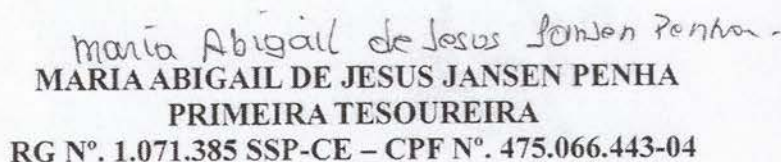 Maria Abigail de Jesus Jansen Penha.
MARIA ABIGAIL DE JESUS JANSEN PENHA
PRIMEIRA TESOUREIRA
RG Nº. 1.071.385 SSP-CE – CPF Nº. 475.066.443-04